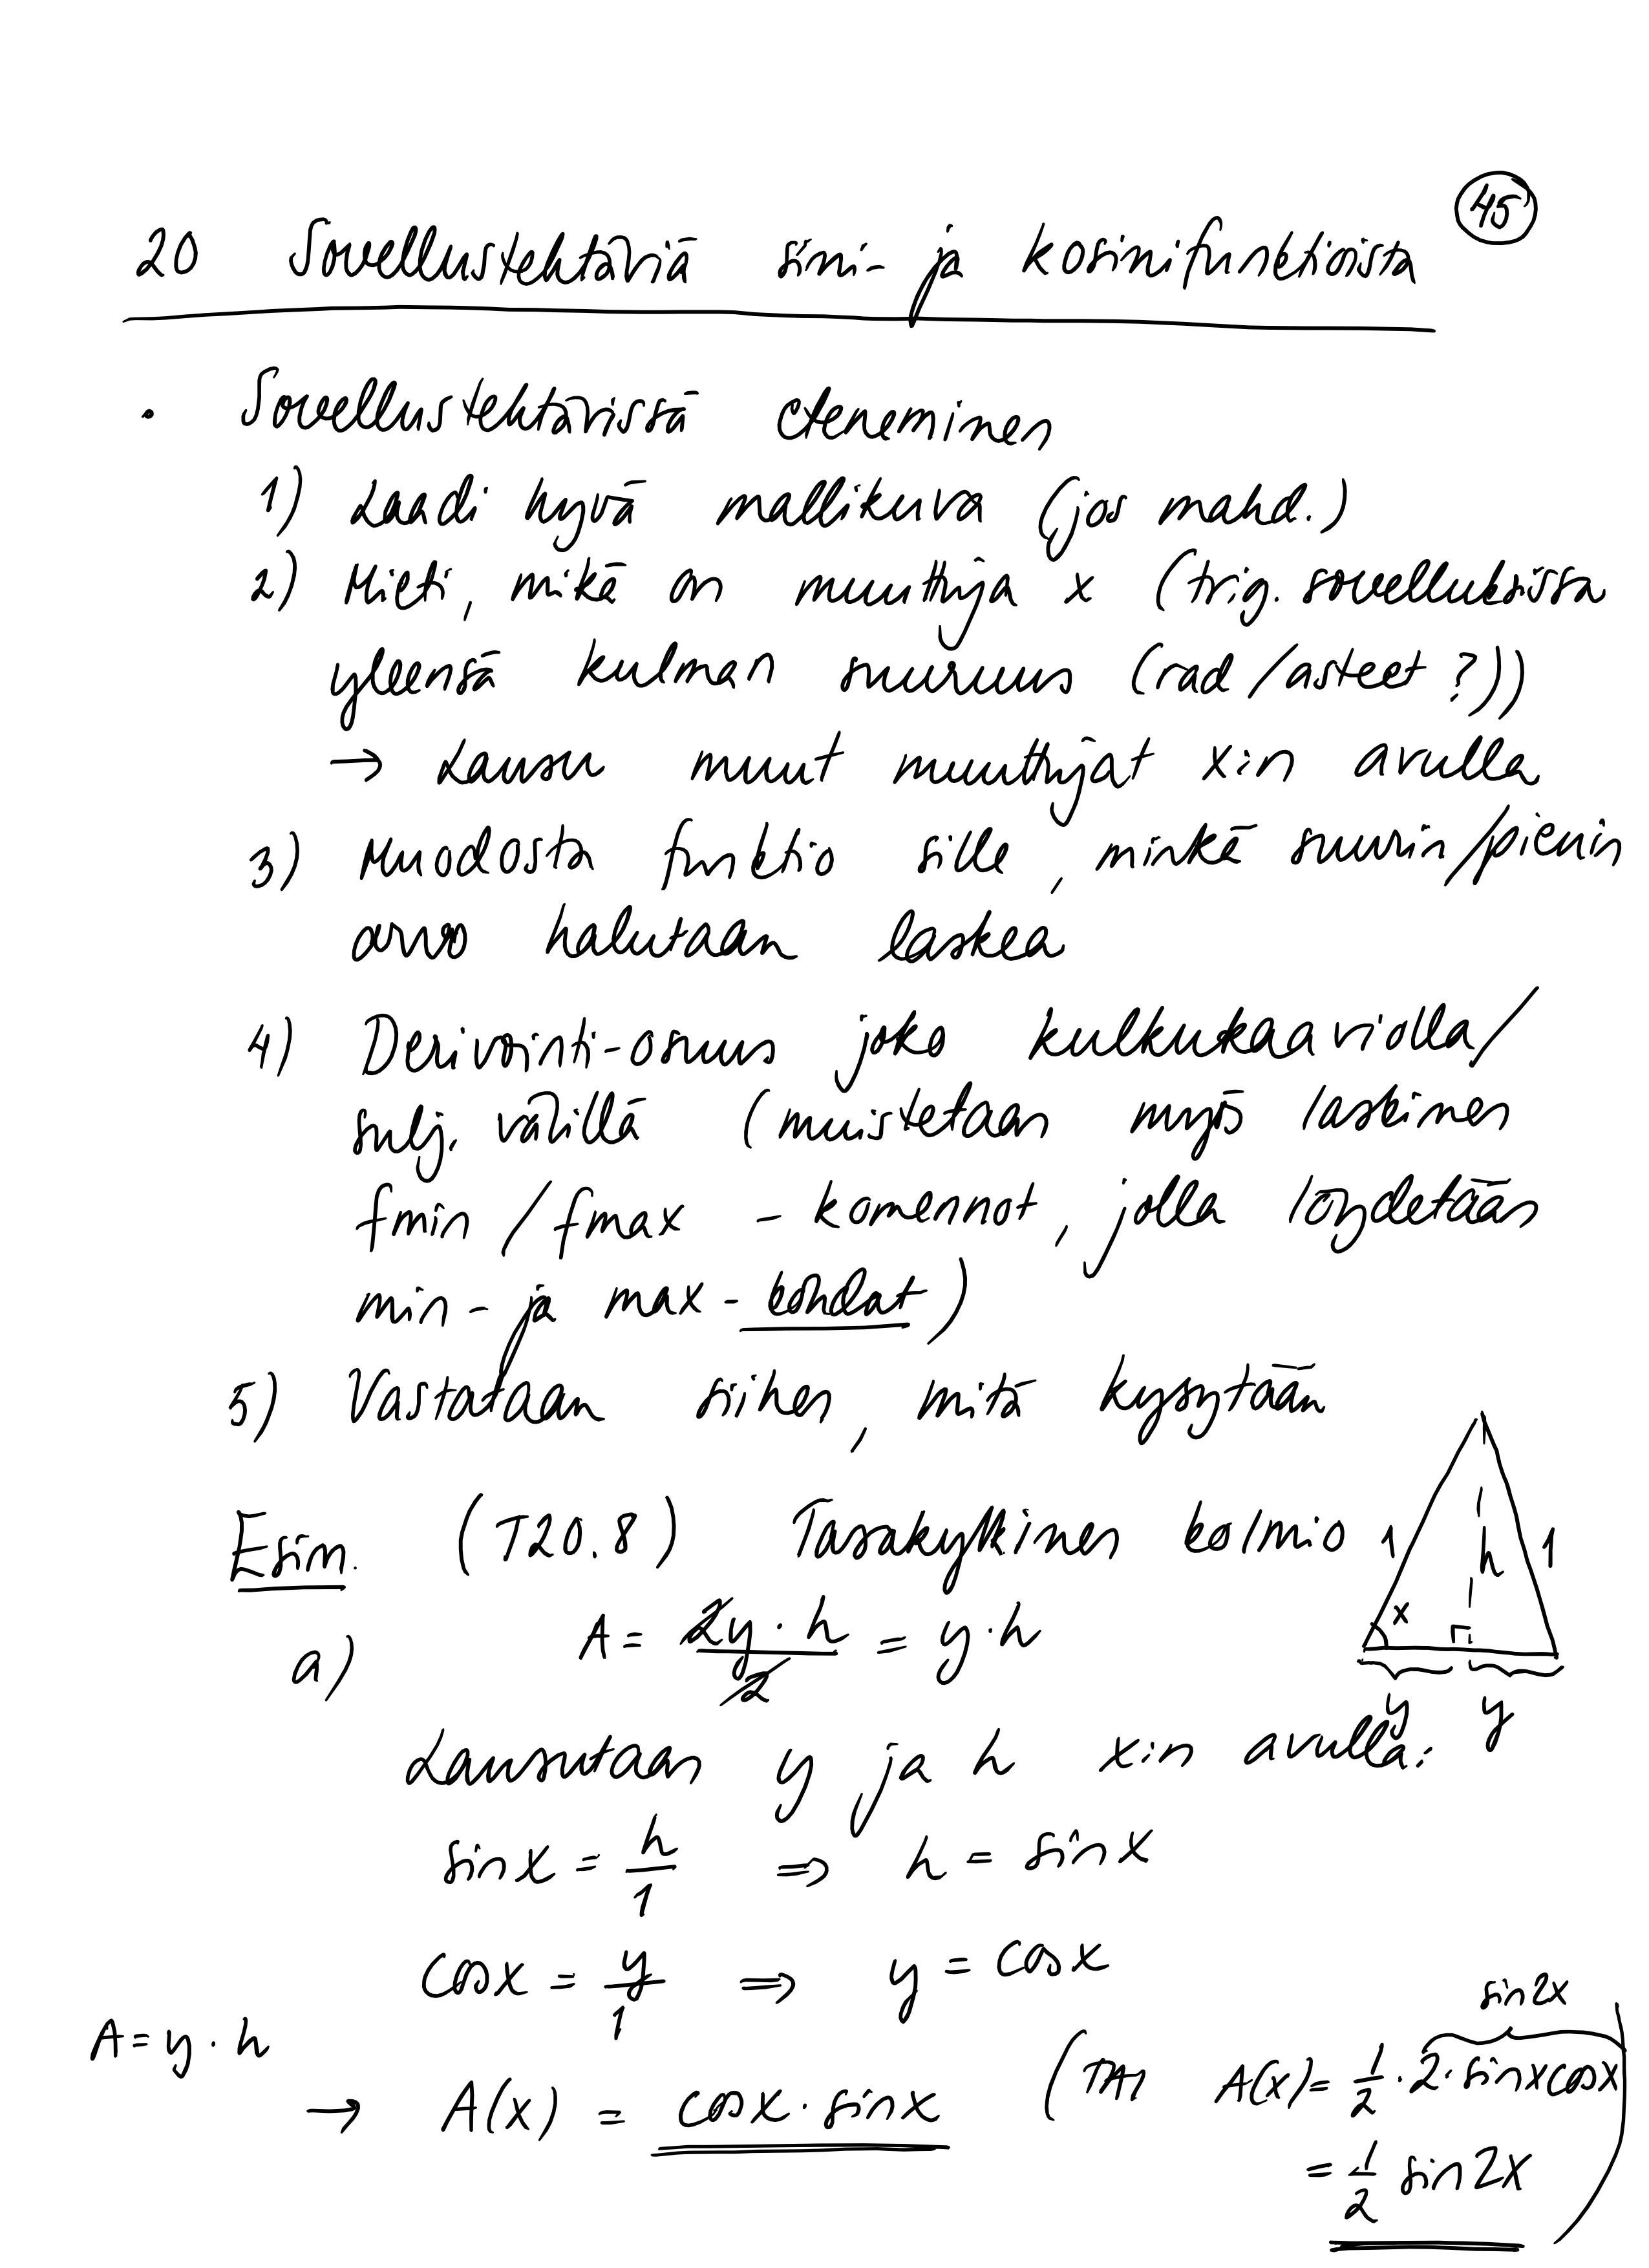 45
20 Sovellustehtäviä sini- ja kosinifunktioista
• Sovellustehtävissä eteneminen
1) Laadi hyvä mallikuva (jos mahd.)
2) Mieti, mikä on muuttuja x (trig. sovelluksissa
yleensä kulman suuruus (rad/asteet ?))
→ Lausu muut muuttujat x:n avulla
3) Muodosta funktio sille, minkä suurin/pienin
arvo halutaan laskea
4) Derivointi-osuus joko kulkukaaviolla/
sulj. välillä (muistetaan myös laskimen
fmin / fmax - komennot, jolla löydetään
min - ja max - kohdat)
5) Vastataan siihen, mitä kysytään
Esim. (T20.8) Tasakylkinen kolmio
1 h 1
x
y y
a) A = 2y · h / 2 = y · h
Lausutaan y ja h x:n avulla:
sin x = h/1 ⇒ h = sin x
cos x = y/1 ⇒ y = cos x
A = y · h
→ A(x) = cos x · sin x
sin 2x
(TAI A(x) = 1/2 · 2 · sin x cos x
= 1/2 sin 2x)